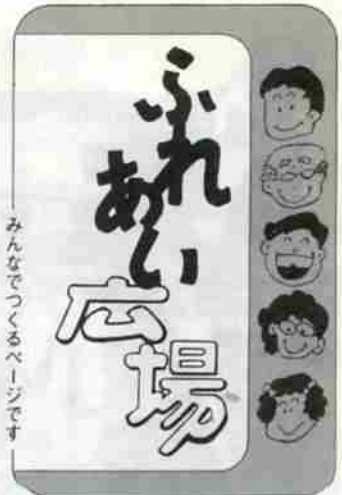 ふれ
あい
広場
みんなでつくるページです